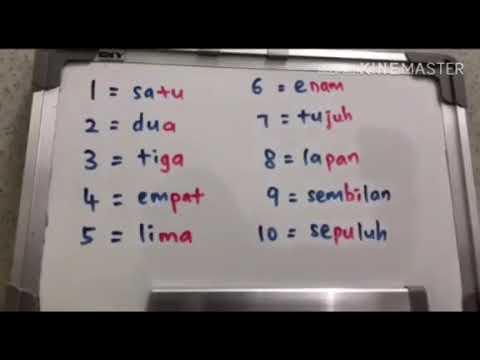 KINEMASTER
1 = satu
2 = dua
3 = tiga
4 = empat
5 = lima
6 = enam
7 = tujuh
8 = lapan
9 = sembilan
10 = sepuluh